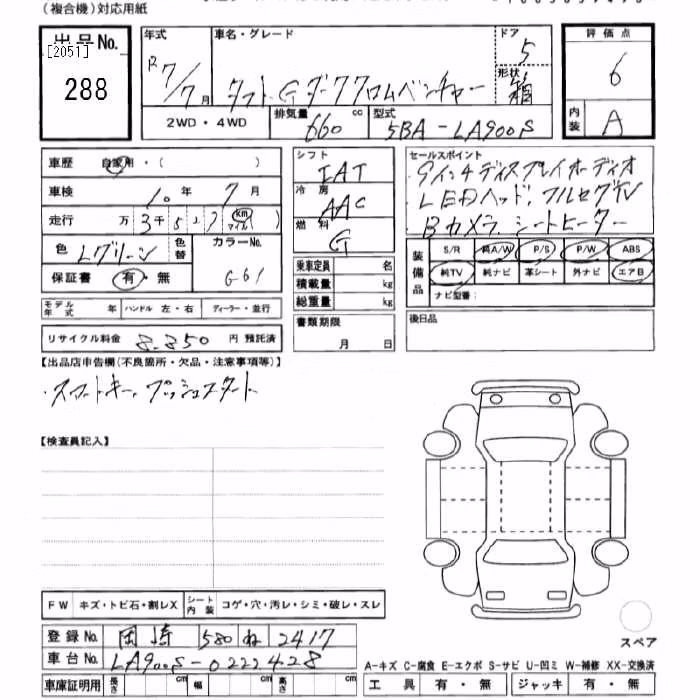 (複合機)対応用紙
出品No.
[2051]
288
年式
R7/7月
車名・グレード
タフト Gダーククロムベンチャー
ドア
5
形状
箱
2WD・4WD
排気量
660 cc
型式
5BA-LA900S
評価点
6
内装
A
車歴 自家用・( )
車検 10年 7月
走行 万 3千 5 7 km マイル
色 Lグリーン 色替
カラーNo.
G61
保証書 有・無
モデル年式 年 ハンドル 左・右 ディーラー・並行
リサイクル料金 8,850円 預託済
シフト
IAT
冷房
AAC
燃料
G
乗車定員 名
積載量 kg
総重量 kg
書類期限
月 日
セールスポイント
9インチディスプレイオーディオ
LEDヘッド、フルセグTV
Bカメラ シートヒーター
装備品
S/R 純A/W P/S P/W ABS
純TV 純ナビ 革シート 外ナビ エアB
ナビ型番:
後日品
【出品店申告欄(不良箇所・欠品・注意事項等)】
・スマートキー、プッシュスタート
【検査員記入】
FW キズ・トビ石・割レX シート内装 コゲ・穴・汚レ・シミ・破レ・スレ
登録No. 岡崎 580 ね 2417
車台No. LA900S-0222428
車庫証明用 長さ cm 幅 cm 高さ cm
スペア
A-キズ C-腐食 E-エクボ S-サビ U-凹ミ W-補修 XX-交換済
工具 有・無 ジャッキ 有・無